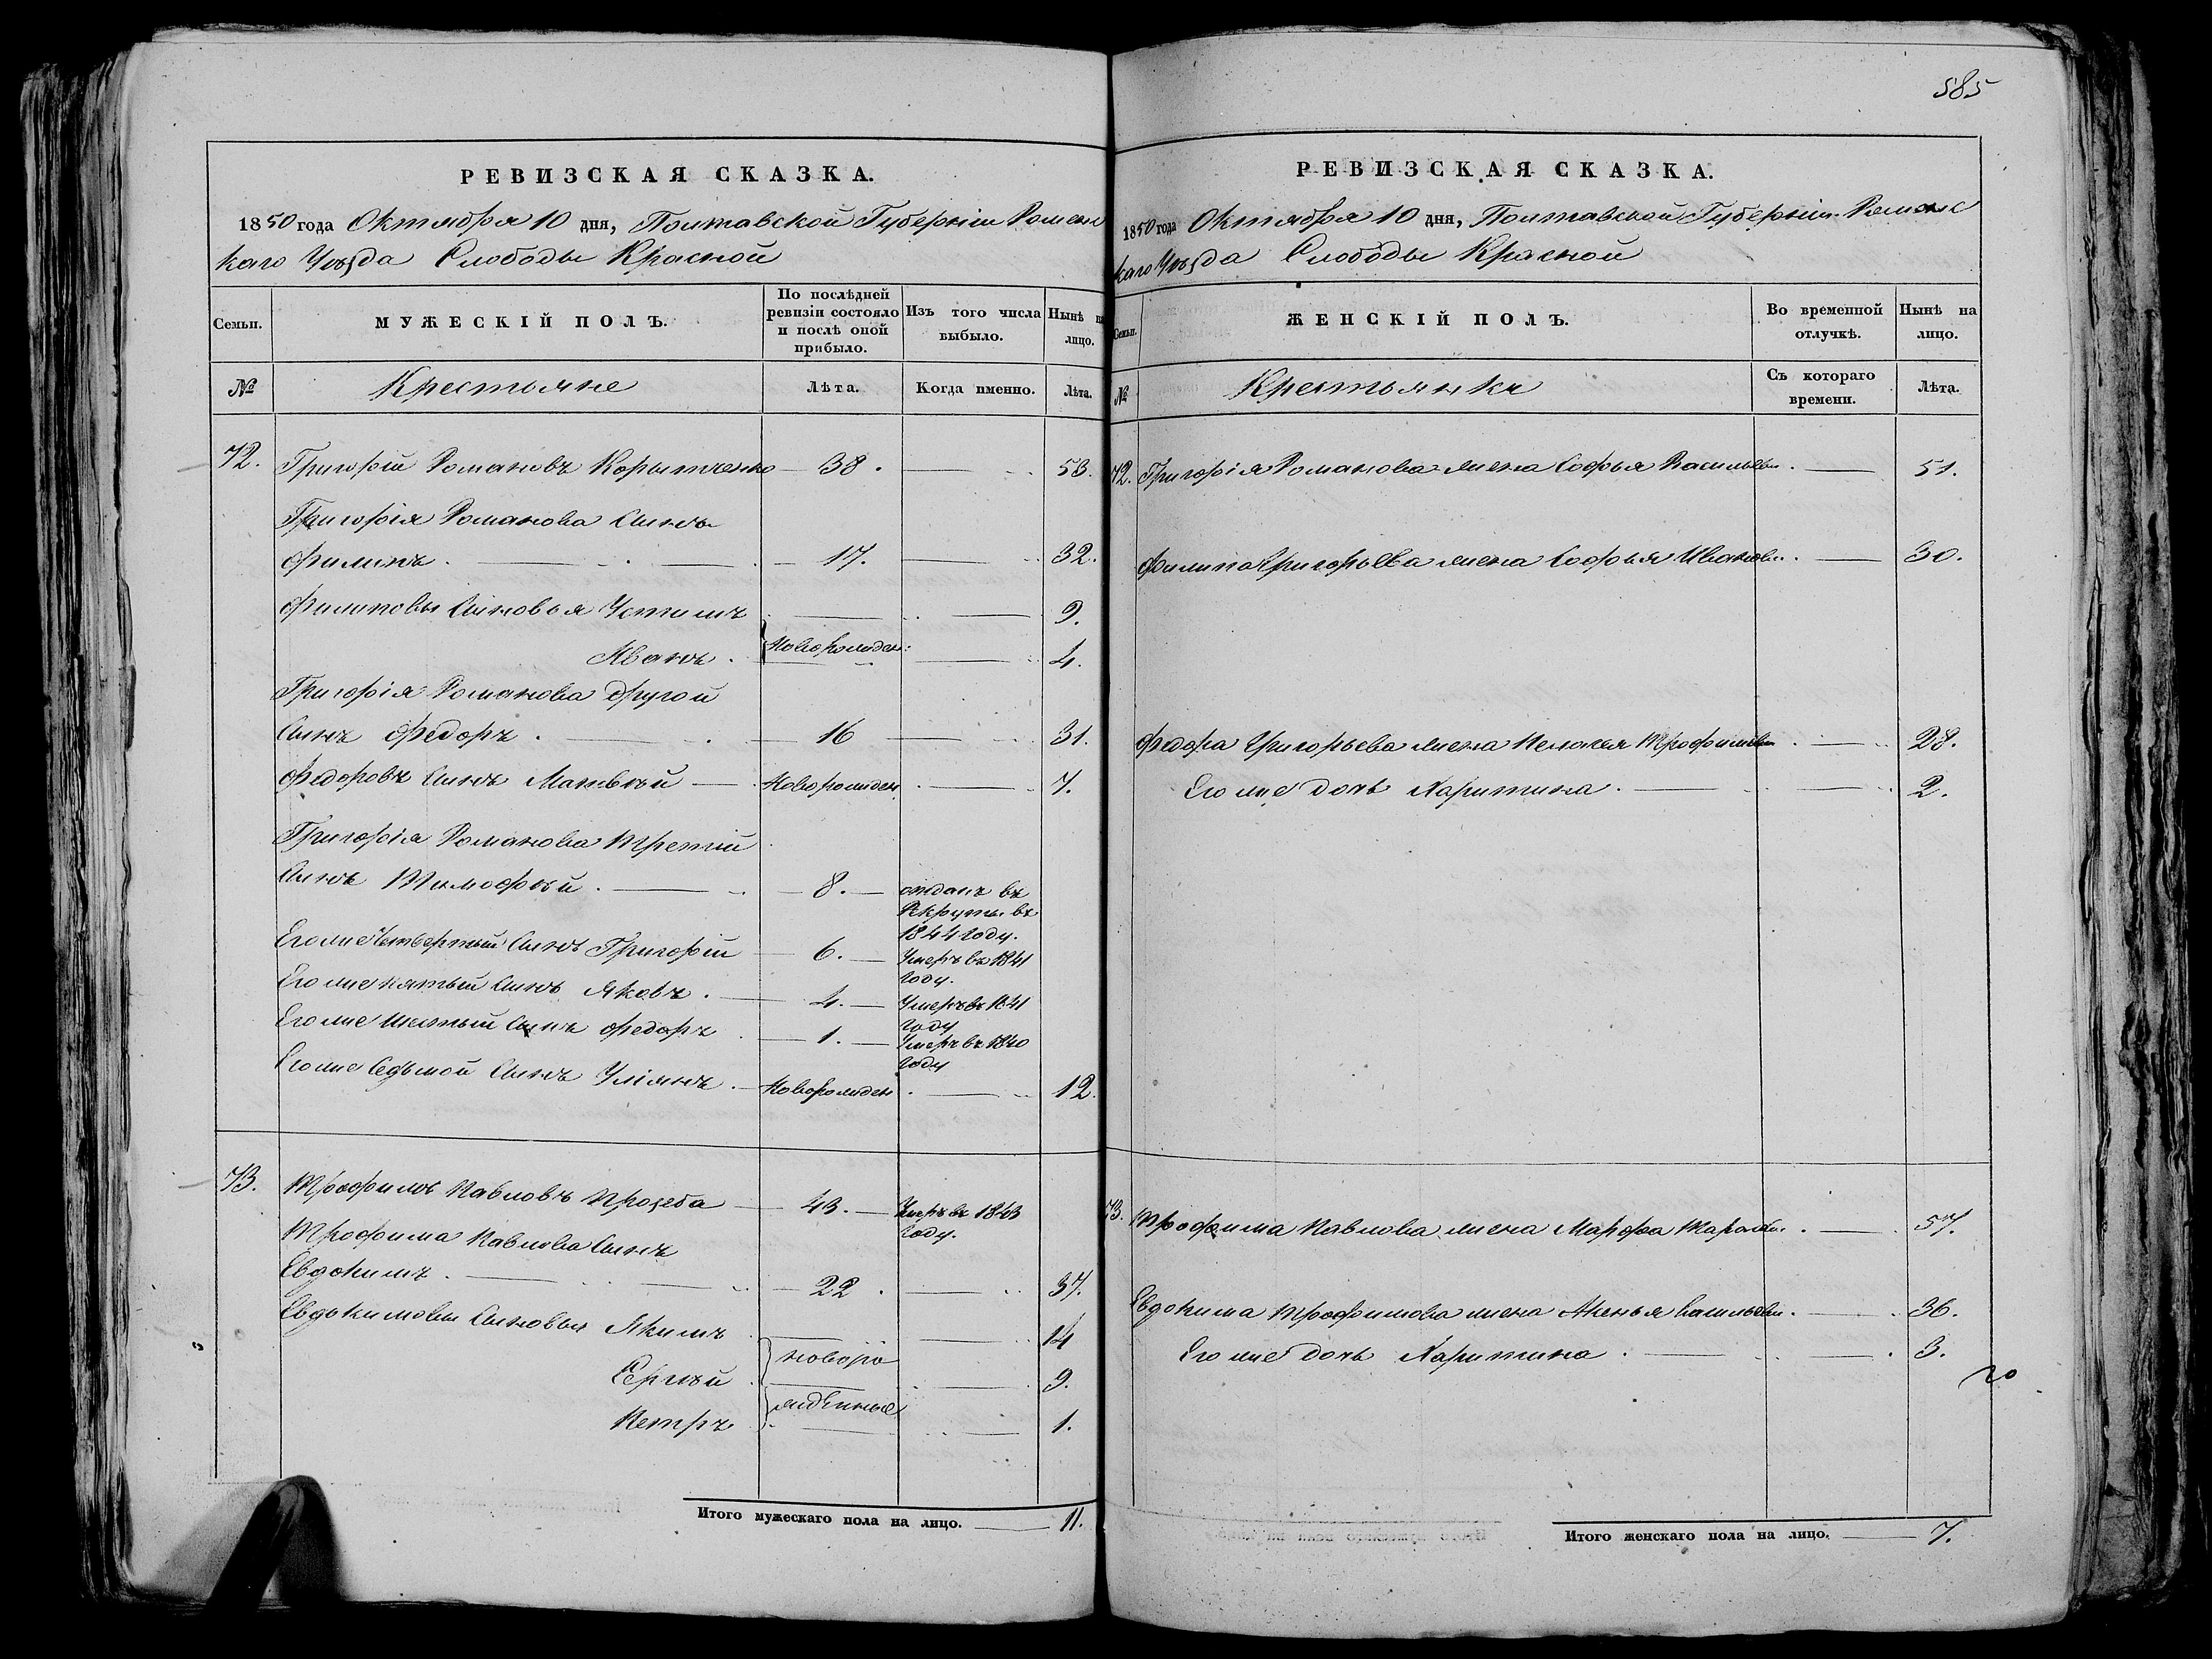 РЕВИЗСКАЯ СКАЗКА.
1850 года Октября 10 дня, Полтавской Губерніи Роменс
каго Уѣзда Слободы Красной
Семьи. МУЖЕСКІЙ ПОЛЪ. По послѣдней ревизіи состояло и послѣ оной прибыло. Изъ того числа выбыло. Нынѣ на лицо.
№ Крестьяне Лѣта. Когда именно. Лѣта.
72. Григорій Романовъ Корытченко 38. 53.
Григорія Романова Сынъ
Филипъ 17. 32.
Филиповы Сыновья Устимъ 9.
Иванъ Новорожден: 4.
Григорія Романова другой
Сынъ Федоръ 16 31.
Федоровъ Сынъ Матвѣй Новорожден 7.
Григорія Романова третій
Сынъ Тимофѣй 8. отданъ въ
Рекруты въ
1844 году.
Его же Четвертый Сынъ Григорій 6. Умеръ въ 1841
году.
Его же пятый Сынъ Яковъ 4. Умеръ въ 1841
году
Его же шестый Сынъ Федоръ 1. Умеръ въ 1840
году
Его же Седьмой Сынъ Уліянъ Новорожден 12.
73. Трофимъ Павловъ 43. Умеръ въ 1843
году.
Трофима Павлова Сынъ
Евдокимъ 22. 37.
Евдокимовы Сыновья Якимъ 14
Сергѣй новоро 9.
Петръ жденные 1.
Итого мужескаго пола на лицо. 11.
585
РЕВИЗСКАЯ СКАЗКА.
1850 года Октября 10 дня, Полтавской Губерніи Роменс
каго Уѣзда Слободы Красной
Семьи. ЖЕНСКІЙ ПОЛЪ. Во временной отлучкѣ. Нынѣ на лицо.
№ Крестьянки Съ котораго времени. Лѣта.
72. Григорія Романова жена Софья Васильева 51.
Филипа Григорьева жена Софья Иванова 30.
Федора Григорьева жена Пелагея Трофимова 28.
Его же дочь Харитина 2.
73. Трофима Павлова жена Марфа 57.
Евдокима Трофимова жена Васильева 36.
Его же дочь Харитина 3.
Итого женскаго пола на лицо. 7.